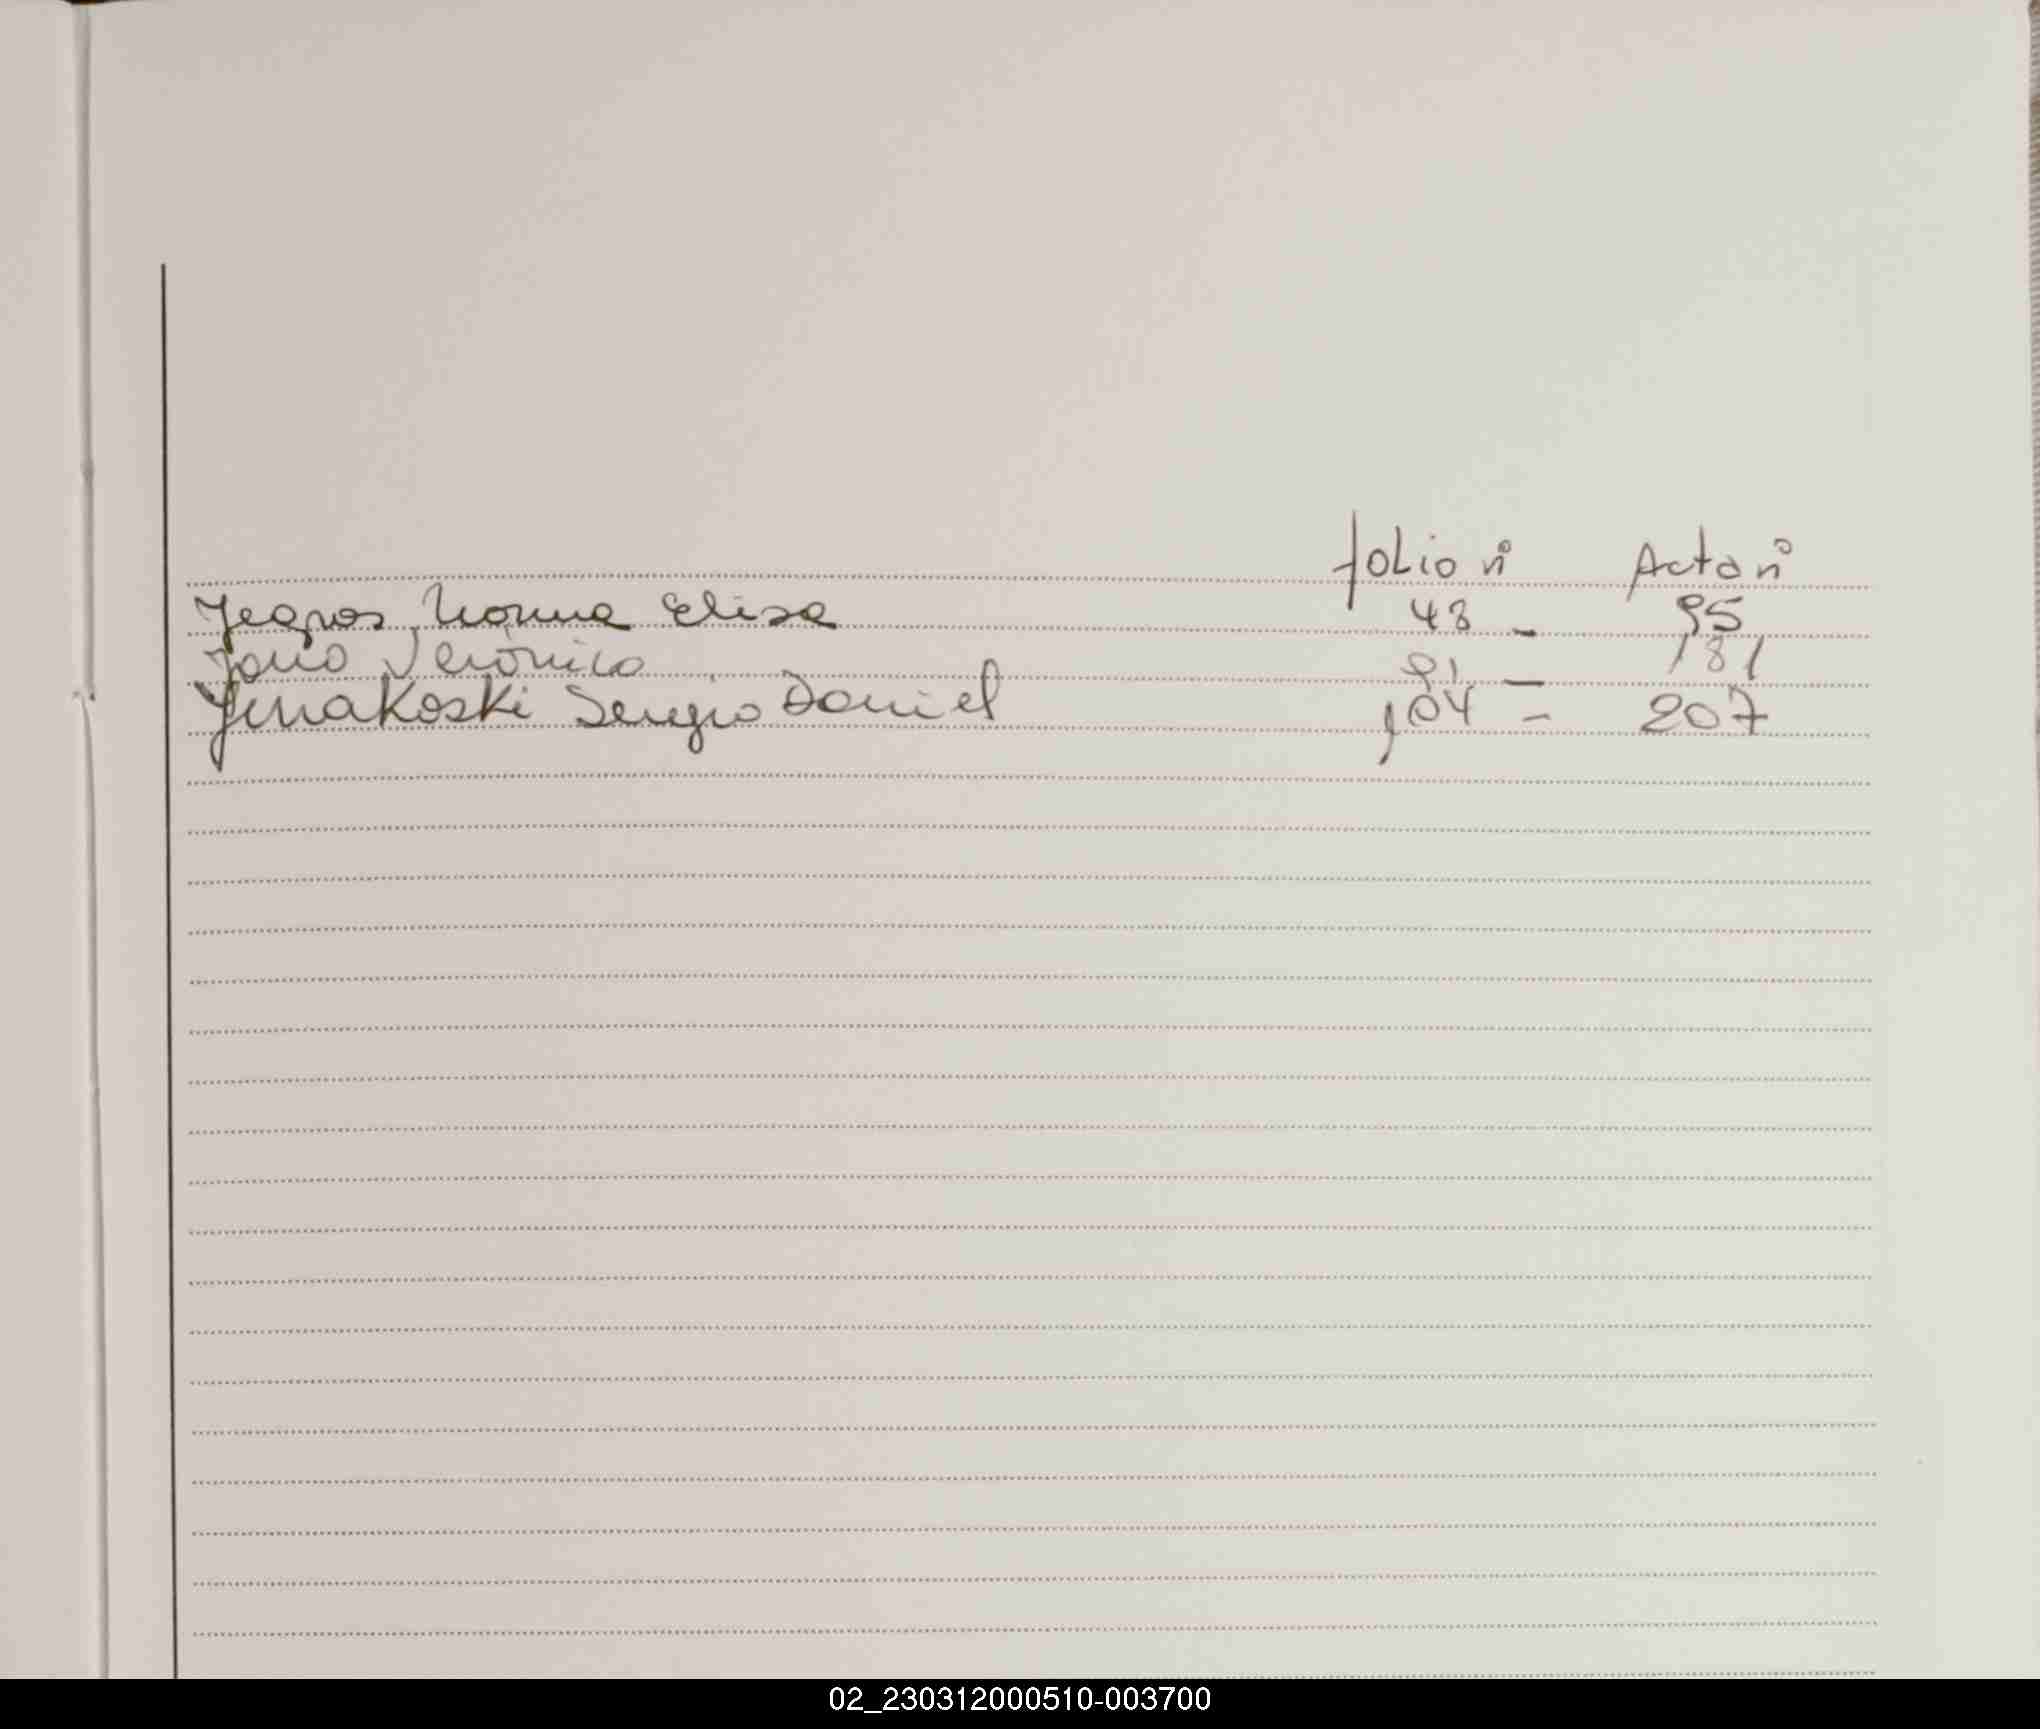 folio nº Acta nº
Yegros, Norma Elisa 48 - 95
Verónica 91 - 181
Sergio Daniel 104 - 207
02_230312000510-003700